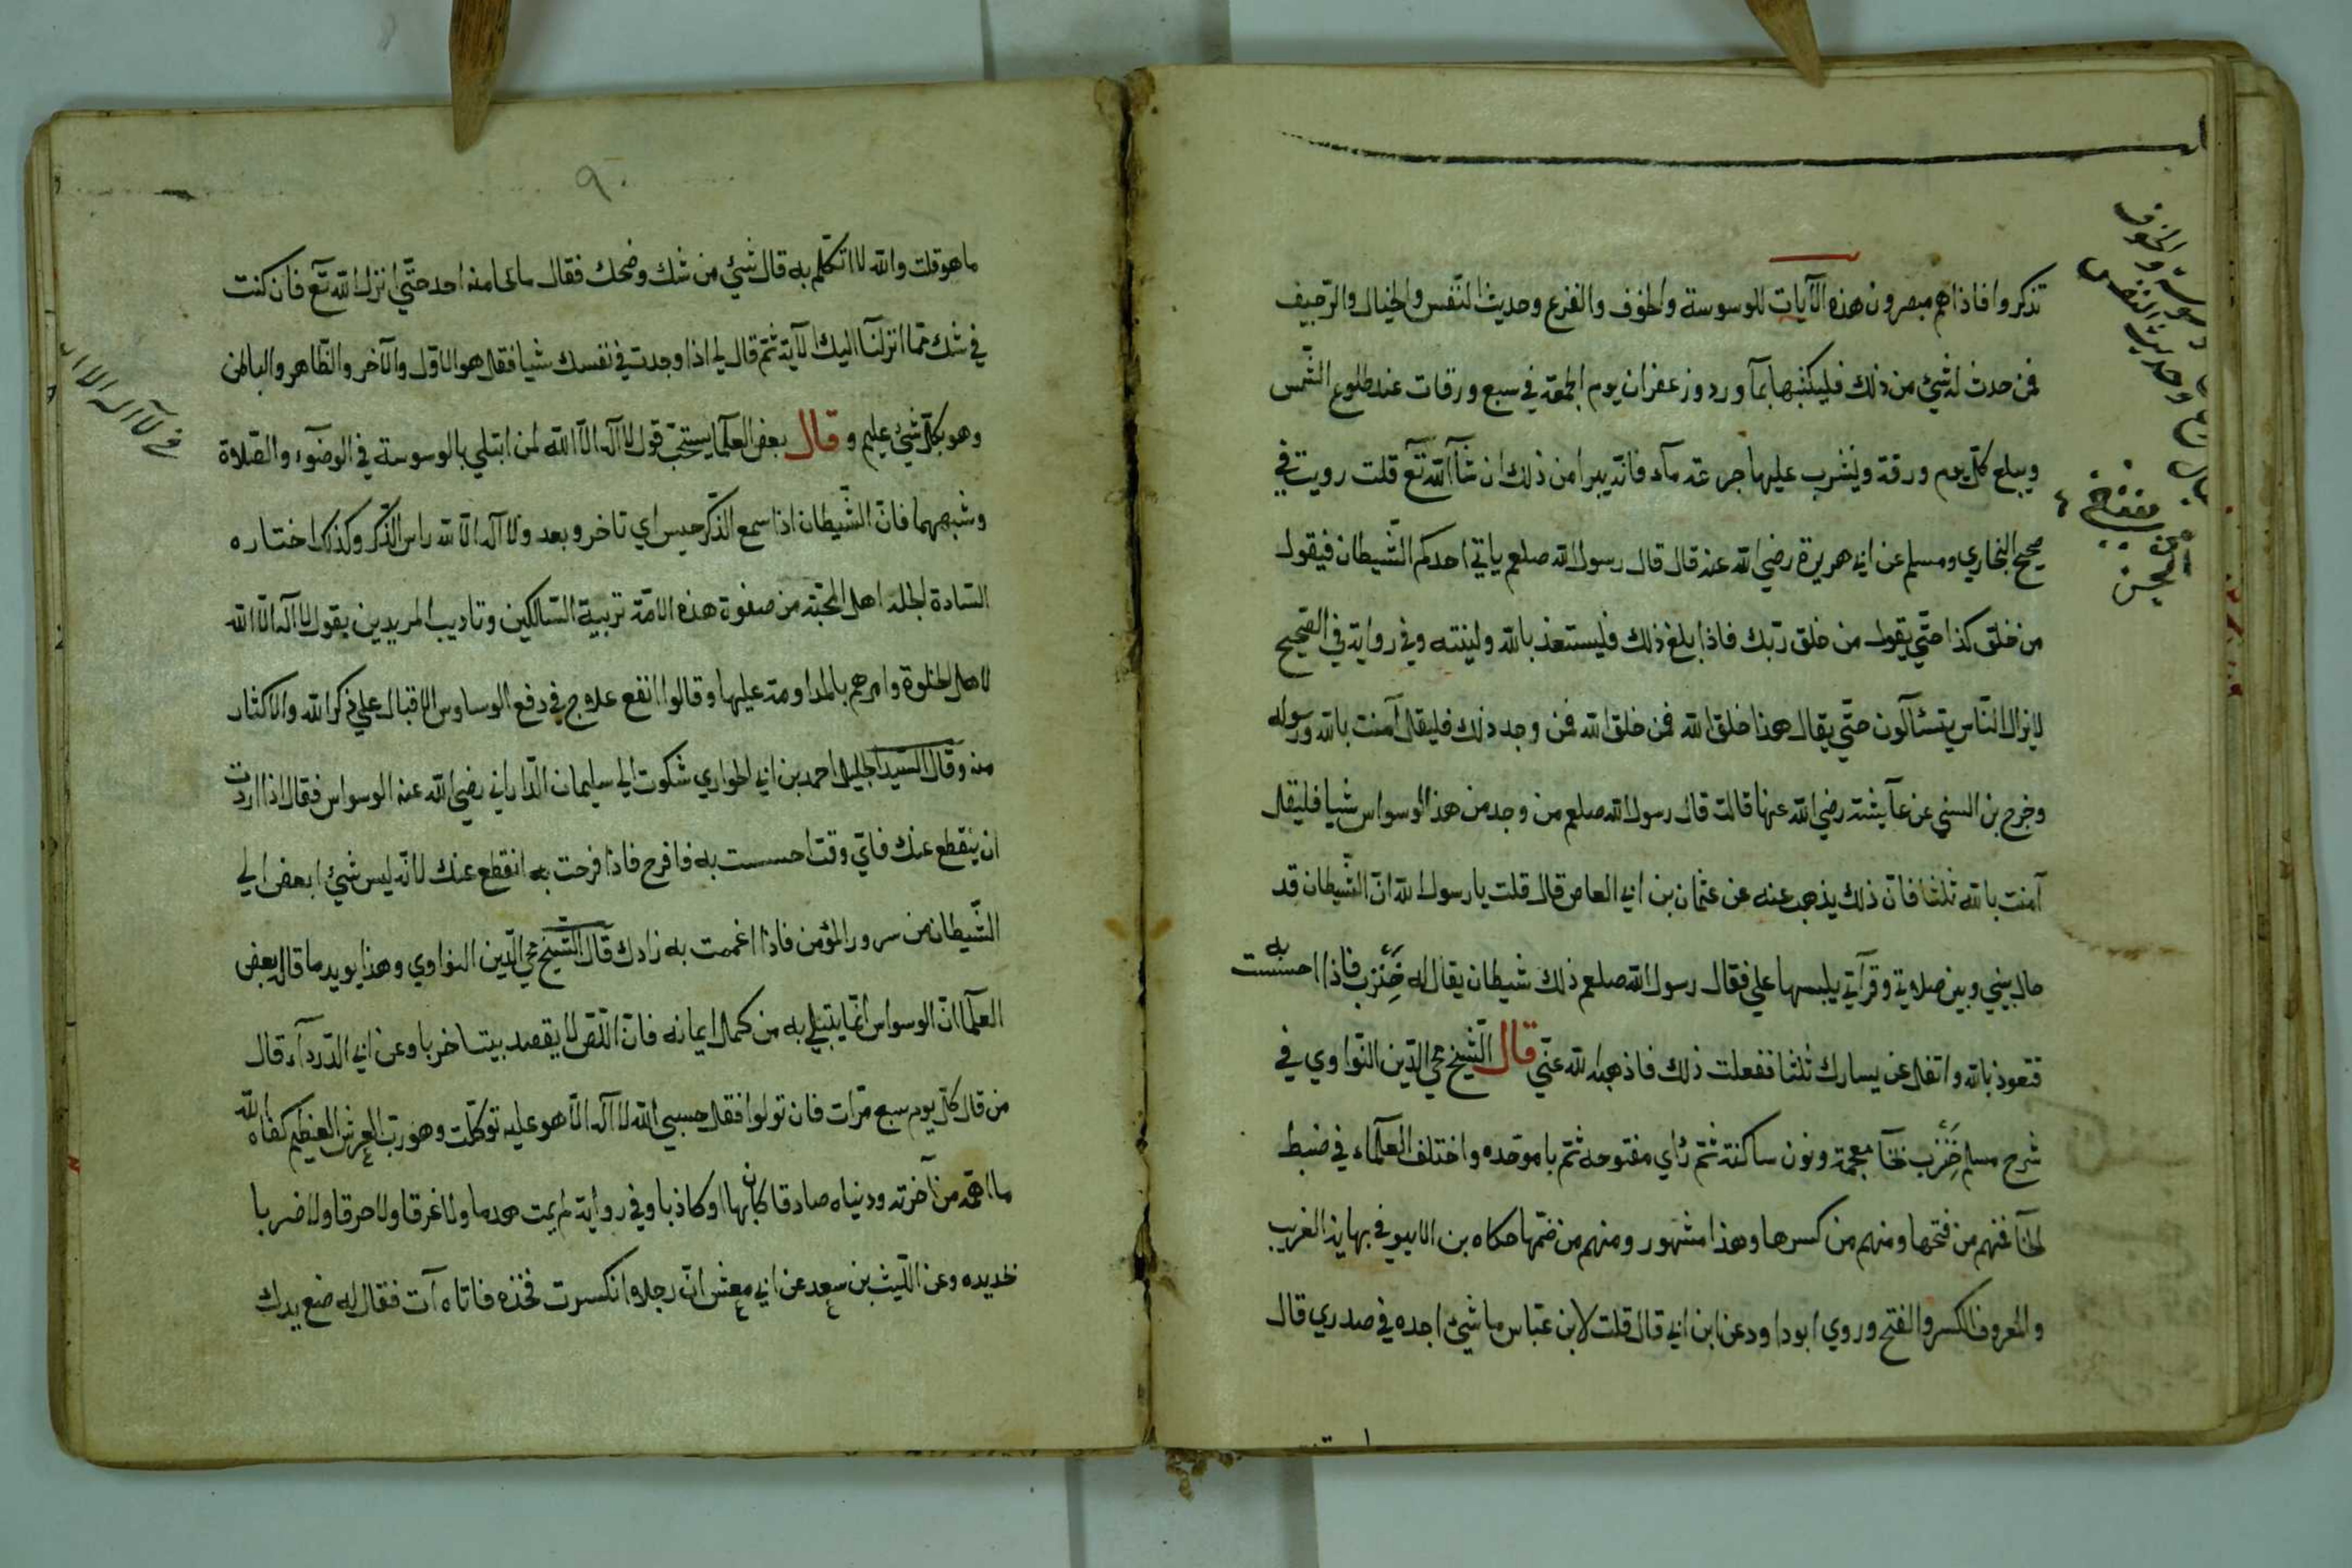 تذكروا فاذا هم مبصرون هذه الآيات للوسوسة والخوف والفزع وحديث النفس والخيال والرجيف
فمن حدث له شئ من ذلك فليكتبها بمآ ورد وزعفران يوم الجمعة في سبع ورقات عند طلوع الشمس
ويبلع كل يوم ورقة ويشرب عليها جرعة مآء فانه يبرا من ذلك ان شآ الله تع قلت رويت في
صحيح البخاري ومسلم عن ابي هريرة رضي الله عنه قال قال رسول الله صلعم ياتي احدكم الشيطان فيقول
من خلق كذا حتي يقول من خلق ربك فاذا بلغ ذلك فليستعذ بالله ولينته وفي رواية في الصحيح
لا يزال الناس يتسئآلون حتي يقال هذا خلق الله فمن خلق الله فمن وجد ذلك فليقل آمنت بالله ورسوله
وخرج بن السني عن عآيشة رضي الله عنها قالت قال رسول الله صلعم من وجد من هذا الوسواس شيا فليقل
آمنت بالله ثلثا فان ذلك يذهب عنه عن عثمان بن ابي العاص قال قلت يا رسول الله ان الشيطان قد
حال بيني وبين صلاتي وقرآتي يلبسها علي فقال رسول الله صلعم ذلك شيطان يقال له خنزب فاذا احسست به
فتعوذ بالله واتفل عن يسارك ثلثا ففعلت ذلك فاذهبه الله عني قال الشيخ محي الدين النواوي في
شرح مسلم خنزب بخآ معجمة ونون ساكنة ثم زاي مفتوحه ثم با موحده واختلف العلمآء في ضبط
الخآ فمنهم من فتحها ومنهم من كسرها وهذا مشهور ومنهم من ضمها حكاه بن الاثير في نهاية الغريب
والمعروف الكسر والفتح وروي ابو داود عن ابن ابي قال قلت لابن عباس ما شئ اجده في صدري قال
وسوسة والخوف
وحديث النفس
منفعة
الجن
٩٠
ما هو قلت والله لا اتكلم به قال شئ من شك وضحك فقال ما نجا منه احد حتي انزل الله تع فان كنت
في شك مما انزلنآ اليك الآية ثم قال لي اذا وجدت في نفسك شيا فقل هو الاول والآخر والظاهر والباطن
وهو بكل شئ عليم وقال بعض العلمآ يستحب قول لا اله الا الله لمن ابتلي بالوسوسة في الوضوء والصلاة
وشبههما فان الشيطان اذا سمع الذكر خنس اي تاخر وبعد ولا اله الا الله راس الذكر وكذلك اختاره
السادة الجلة اهل المحبة من صفوة هذه الامة تربية السالكين وتاديب المريدين بقول لا اله الا الله
لاهل الخلوة وامرهم بالمداومة عليها وقالوا انفع علاج في دفع الوساوس الاقبال علي ذكر الله والاكثار
منه وقال السيد الجليل احمد بن ابي الحواري شكوت الي سليمان الداراني رضي الله عنه الوسواس فقال اذا اردت
ان ينقطع عنك فاي وقت احسست به فافرح فاذا فرحت به انقطع عنك لانه ليس شئ ابغض الي
الشيطان من سرور المؤمن فاذا اغممت به زادك قال الشيخ محي الدين النواوي وهذا يويد ما قال بعض
العلمآ ان الوسواس انما يبتلي به من كمل ايمانه فان اللص لا يقصد بيتا خربا وعن ابي الدردآء قال
من قال كل يوم سبع مرات فان تولوا فقل حسبي الله لا اله الا هو عليه توكلت وهو رب العرش العظيم كفاه الله
ما اهمه من آخرته ودنياه صادقا كان بها او كاذبا وفي رواية لم يمت هدما ولا غرقا ولا حرقا ولا ضربا
بحديده وعن الليث بن سعد عن ابي معشر ان رجلا انكسرت فخذه فاتاه آت فقال له ضع يدك
لا اله الا